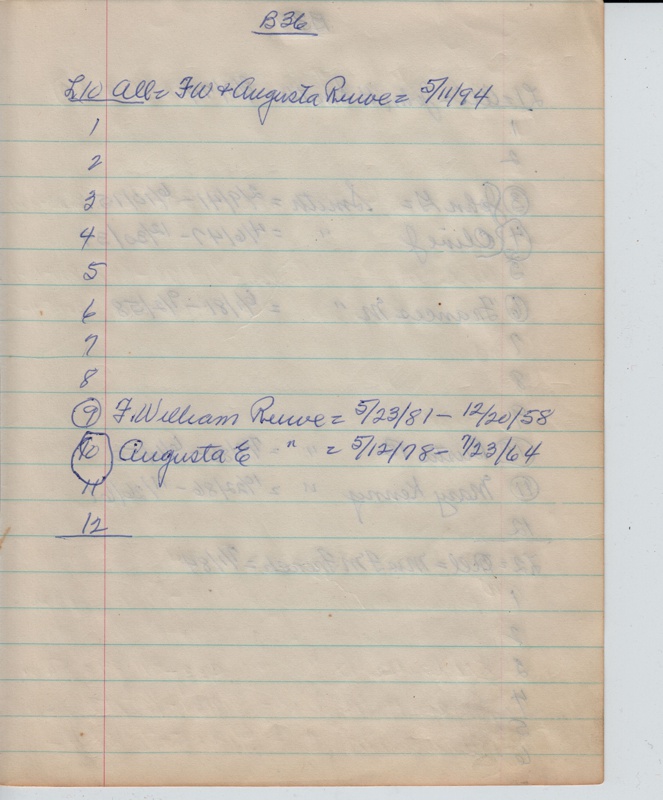 B36
L10 All = FW + Augusta Ruwe = 5/11/94
1
2
3
4
5
6
7
8
9 F. William Ruwe = 5/23/81 - 12/20/58
10 Augusta E " = 5/12/78 - 7/23/64
11
12